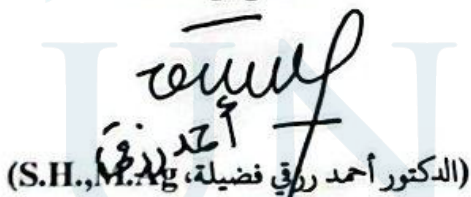 أحمد رزقي
(الدكتور أحمد رزقي فضيلة، S.H.,M.Ag)